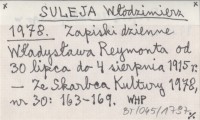 SULEJA Włodzimierz
1978. Zapiski dzienne
Władysława Reymonta od
30 lipca do 4 sierpnia 1915 r.
— Ze Skarbca Kultury 1978,
nr 30: 163-169. WHP
BT/045/1797